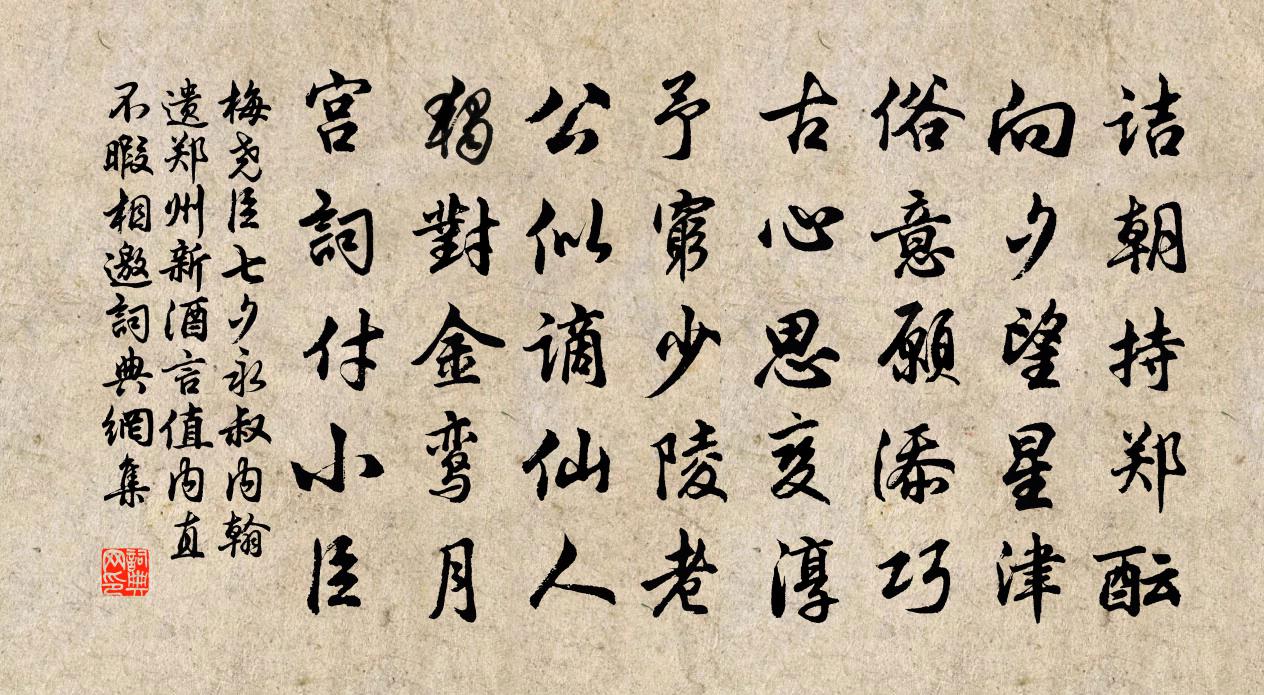 诘朝持郑酝
向夕望星津
俗意愿添巧
古心思变淳
予窮少陵老
公似谪仙人
獨對金鸾月
宫詞付小臣
梅尧臣七夕永叔内翰
遗郑州新酒言值内直
不暇相邀詞典網集
詞典网印